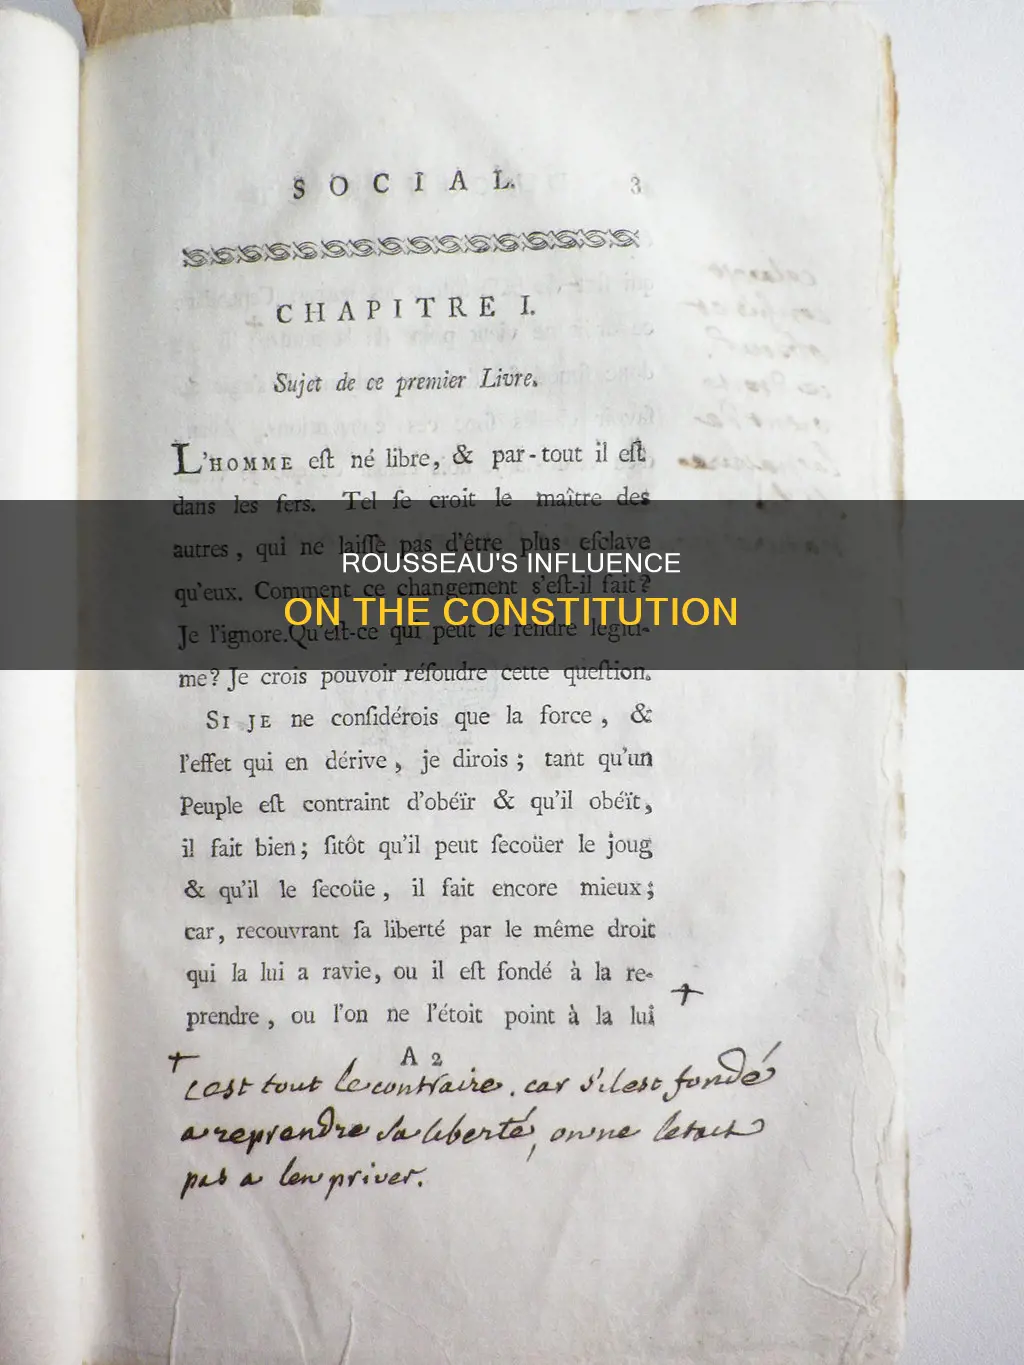 SOCIAL. 3
CHAPITRE I.
Sujet de ce premier Livre.
L'HOMME eſt né libre, & par-tout il eſt
dans les fers. Tel ſe croit le maître des
autres, qui ne laiſſe pas d'être plus eſclave
ROUSSEAU'S INFLUENCE
qu'eux. Comment ce changement s'eſt-il fait?
ON THE CONSTITUTION
Je l'ignore. Qu'eſt-ce qui peut le rendre légiti-
me? Je crois pouvoir réſoudre cette queſtion.
SI JE ne conſidérois que la force, &
l'effet qui en dérive, je dirois; tant qu'un
Peuple eſt contraint d'obéïr & qu'il obéït,
il fait bien; ſitôt qu'il peut ſecoüer le joug
& qu'il le ſecoüe, il fait encore mieux;
car, recouvrant ſa liberté par le même droit
qui la lui a ravie, ou il eſt fondé à la re-
prendre, ou l'on ne l'étoit point à la lui
A 2
c'est tout le contraire. car s'il est fondé
a reprendre sa liberté, on ne letoit
pas a len priver.